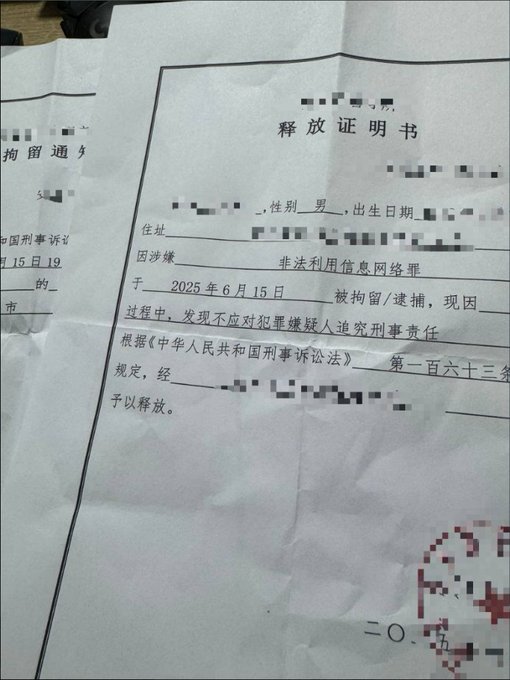 拘留通知
和国刑事诉讼
月15日19
的
市
释放证明书
,性别 男 ,出生日期
住址
因涉嫌 非法利用信息网络罪
于 2025年6月15日 被拘留/逮捕，现因
过程中，发现不应对犯罪嫌疑人追究刑事责任
根据《中华人民共和国刑事诉讼法》 第一百六十三条
规定，经
予以释放。
二〇 五